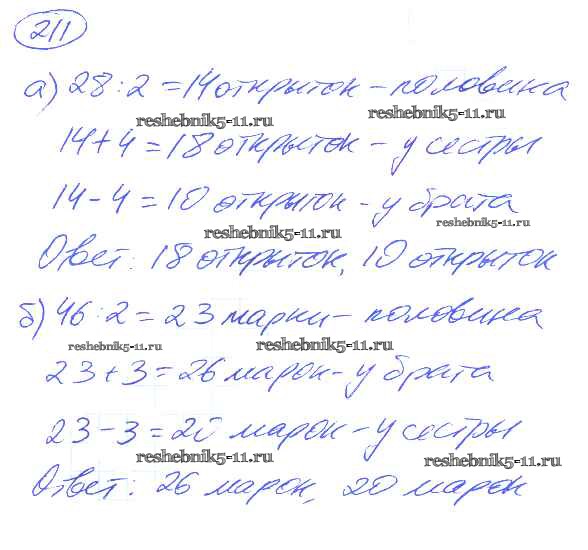 211
а) 28 : 2 = 14 открыток – половина
reshebnik5-11.ru reshebnik5-11.ru
14 + 4 = 18 открыток – у сестры
14 – 4 = 10 открыток – у брата
reshebnik5-11.ru reshebnik5-11.ru
Ответ: 18 открыток, 10 открыток
б) 46 : 2 = 23 марки – половина
reshebnik5-11.ru reshebnik5-11.ru
23 + 3 = 26 марок – у брата
23 – 3 = 20 марок – у сестры
reshebnik5-11.ru reshebnik5-11.ru
Ответ: 26 марок, 20 марок